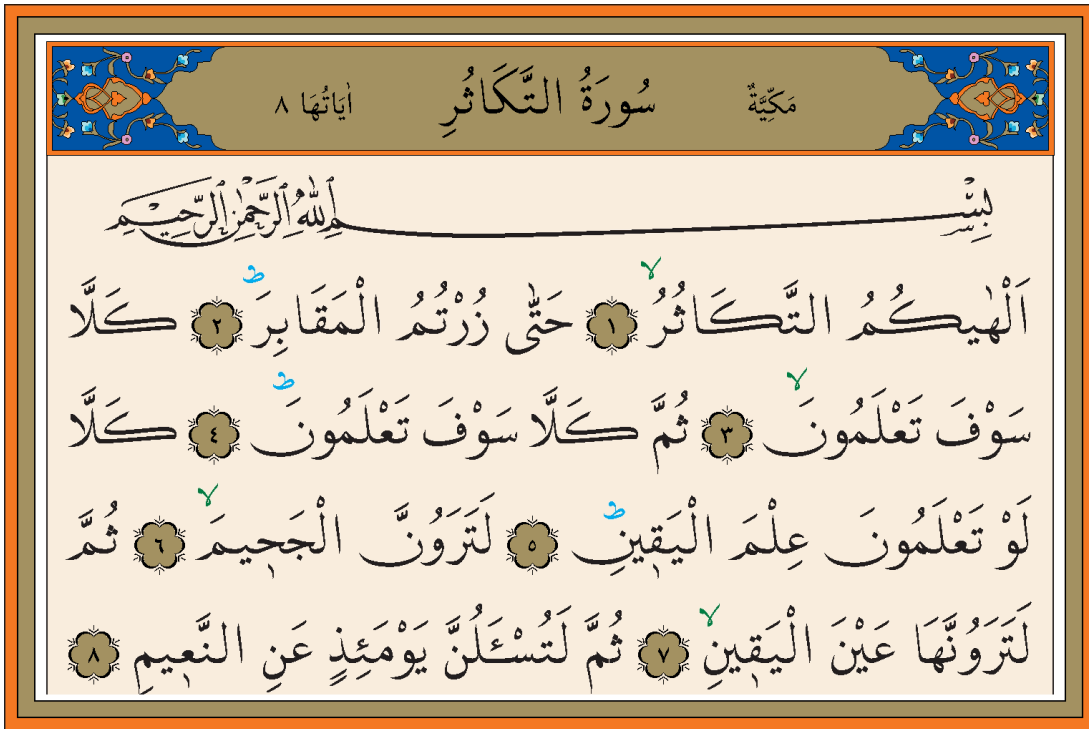 مَكِّيَّةٌ سُورَةُ التَّكَاثُرِ اٰيَاتُهَا ٨
بِسْمِ اللّٰهِ الرَّحْمٰنِ الرَّحِيمِ
اَلْهٰيكُمُ التَّكَاثُرُۙ ١ حَتّٰى زُرْتُمُ الْمَقَابِرَۜ ٢ كَلَّا
سَوْفَ تَعْلَمُونَۙ ٣ ثُمَّ كَلَّا سَوْفَ تَعْلَمُونَۜ ٤ كَلَّا
لَوْ تَعْلَمُونَ عِلْمَ الْيَق۪ينِۜ ٥ لَتَرَوُنَّ الْجَح۪يمَۙ ٦ ثُمَّ
لَتَرَوُنَّهَا عَيْنَ الْيَق۪ينِۙ ٧ ثُمَّ لَتُسْـَٔلُنَّ يَوْمَئِذٍ عَنِ النَّع۪يمِ ٨